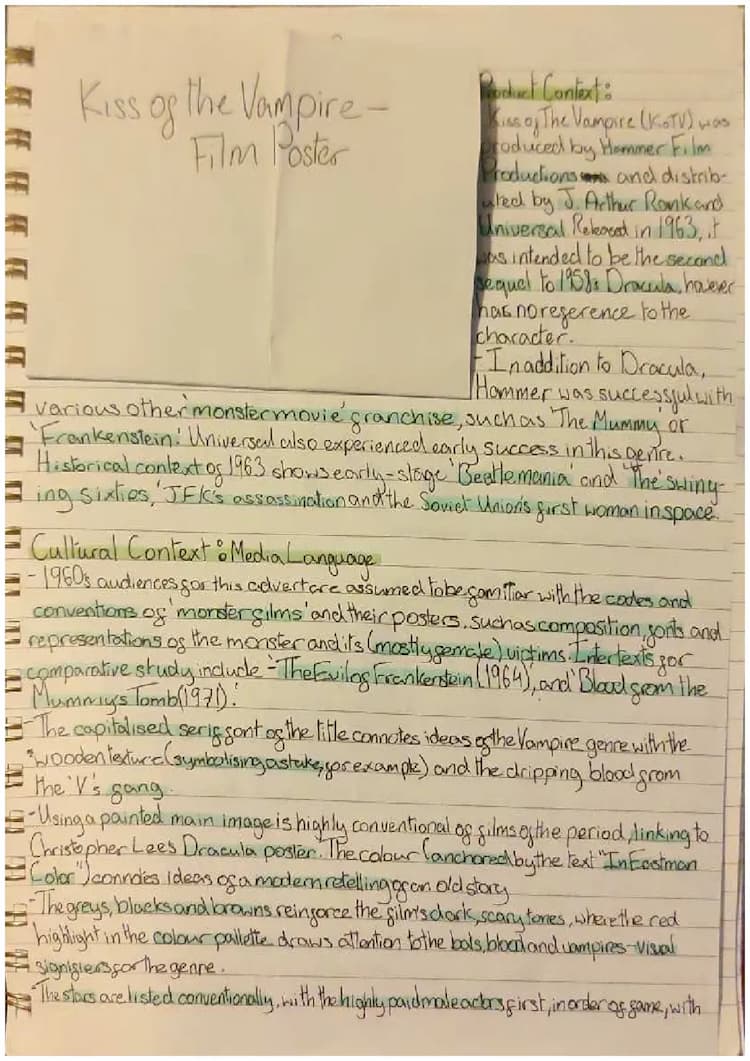 Kiss of the Vampire -
Film Poster
Product Context:
Kiss of The Vampire (KoTV) was
produced by Hammer Film
Productions and distrib-
uted by J. Arthur Rank and
Universal. Released in 1963, it
was intended to be the second
sequel to 1958s Dracula, however
has no reference to the
character.
- In addition to Dracula,
Hammer was successful with
various other 'monster movie' franchise, such as 'The Mummy' or
'Frankenstein.' Universal also experienced early success in this genre.
Historical context of 1963 shows early-stage 'Beatlemania' and 'The swing-
ing sixties,' JFK's assassination and the Soviet Union's first woman in space.
Cultural Context: Media Language
- 1960s audiences for this advert are assumed to be familiar with the codes and
conventions of 'monster films' and their posters, such as composition, fonts and
representations of the monster and its (mostly female) victims. Intertexts for
comparative study include - 'The Evil of Frankenstein (1964), and 'Blood from the
Mummy's Tomb (1971).'
- The capitalised serif font of the title connotes ideas of the Vampire genre with the
wooden texture (symbolising a stake, for example) and the dripping blood from
the 'V's fang.
- Using a painted main image is highly conventional of films of the period, linking to
Christopher Lee's Dracula poster. The colour (anchored by the text "In Eastman
Color") connotes ideas of a modern retelling of an old story
- The greys, blacks and browns reinforce the film's dark, scary tones, where the red
highlight in the colour pallette draws attention to the bats, blood and vampires - visual
signifiers for the genre.
- The stars are listed conventionally, with the highly paid male actors first, in order of fame, with